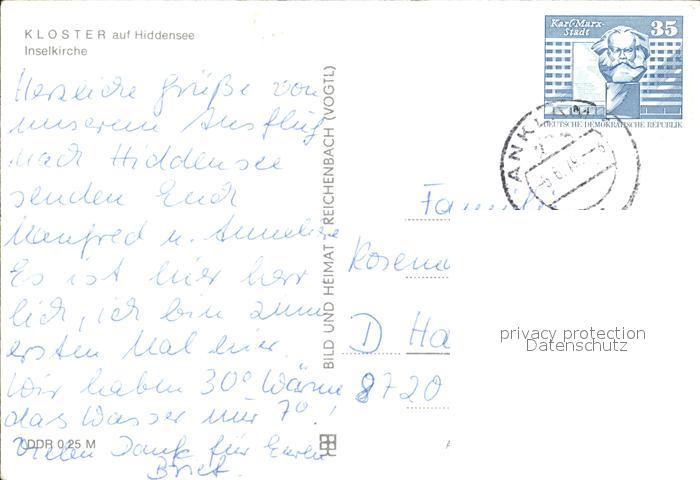 KLOSTER auf Hiddensee
Inselkirche
Herzliche Grüße von
unserem Ausflug
nach Hiddensee
senden Euch
Manfred u. Anneliese
Es ist hier herr
lich, ich bin zum
ersten Mal hier.
Wir haben 30° Wärme
das Wasser nur 7°!
Vielen Dank für Euren
Brief.
DDR 0,25 M
BILD UND HEIMAT REICHENBACH (VOGTL)
Karl-Marx-
Stadt
35
DEUTSCHE DEMOKRATISCHE REPUBLIK
Familie
D
8720
privacy protection
Datenschutz